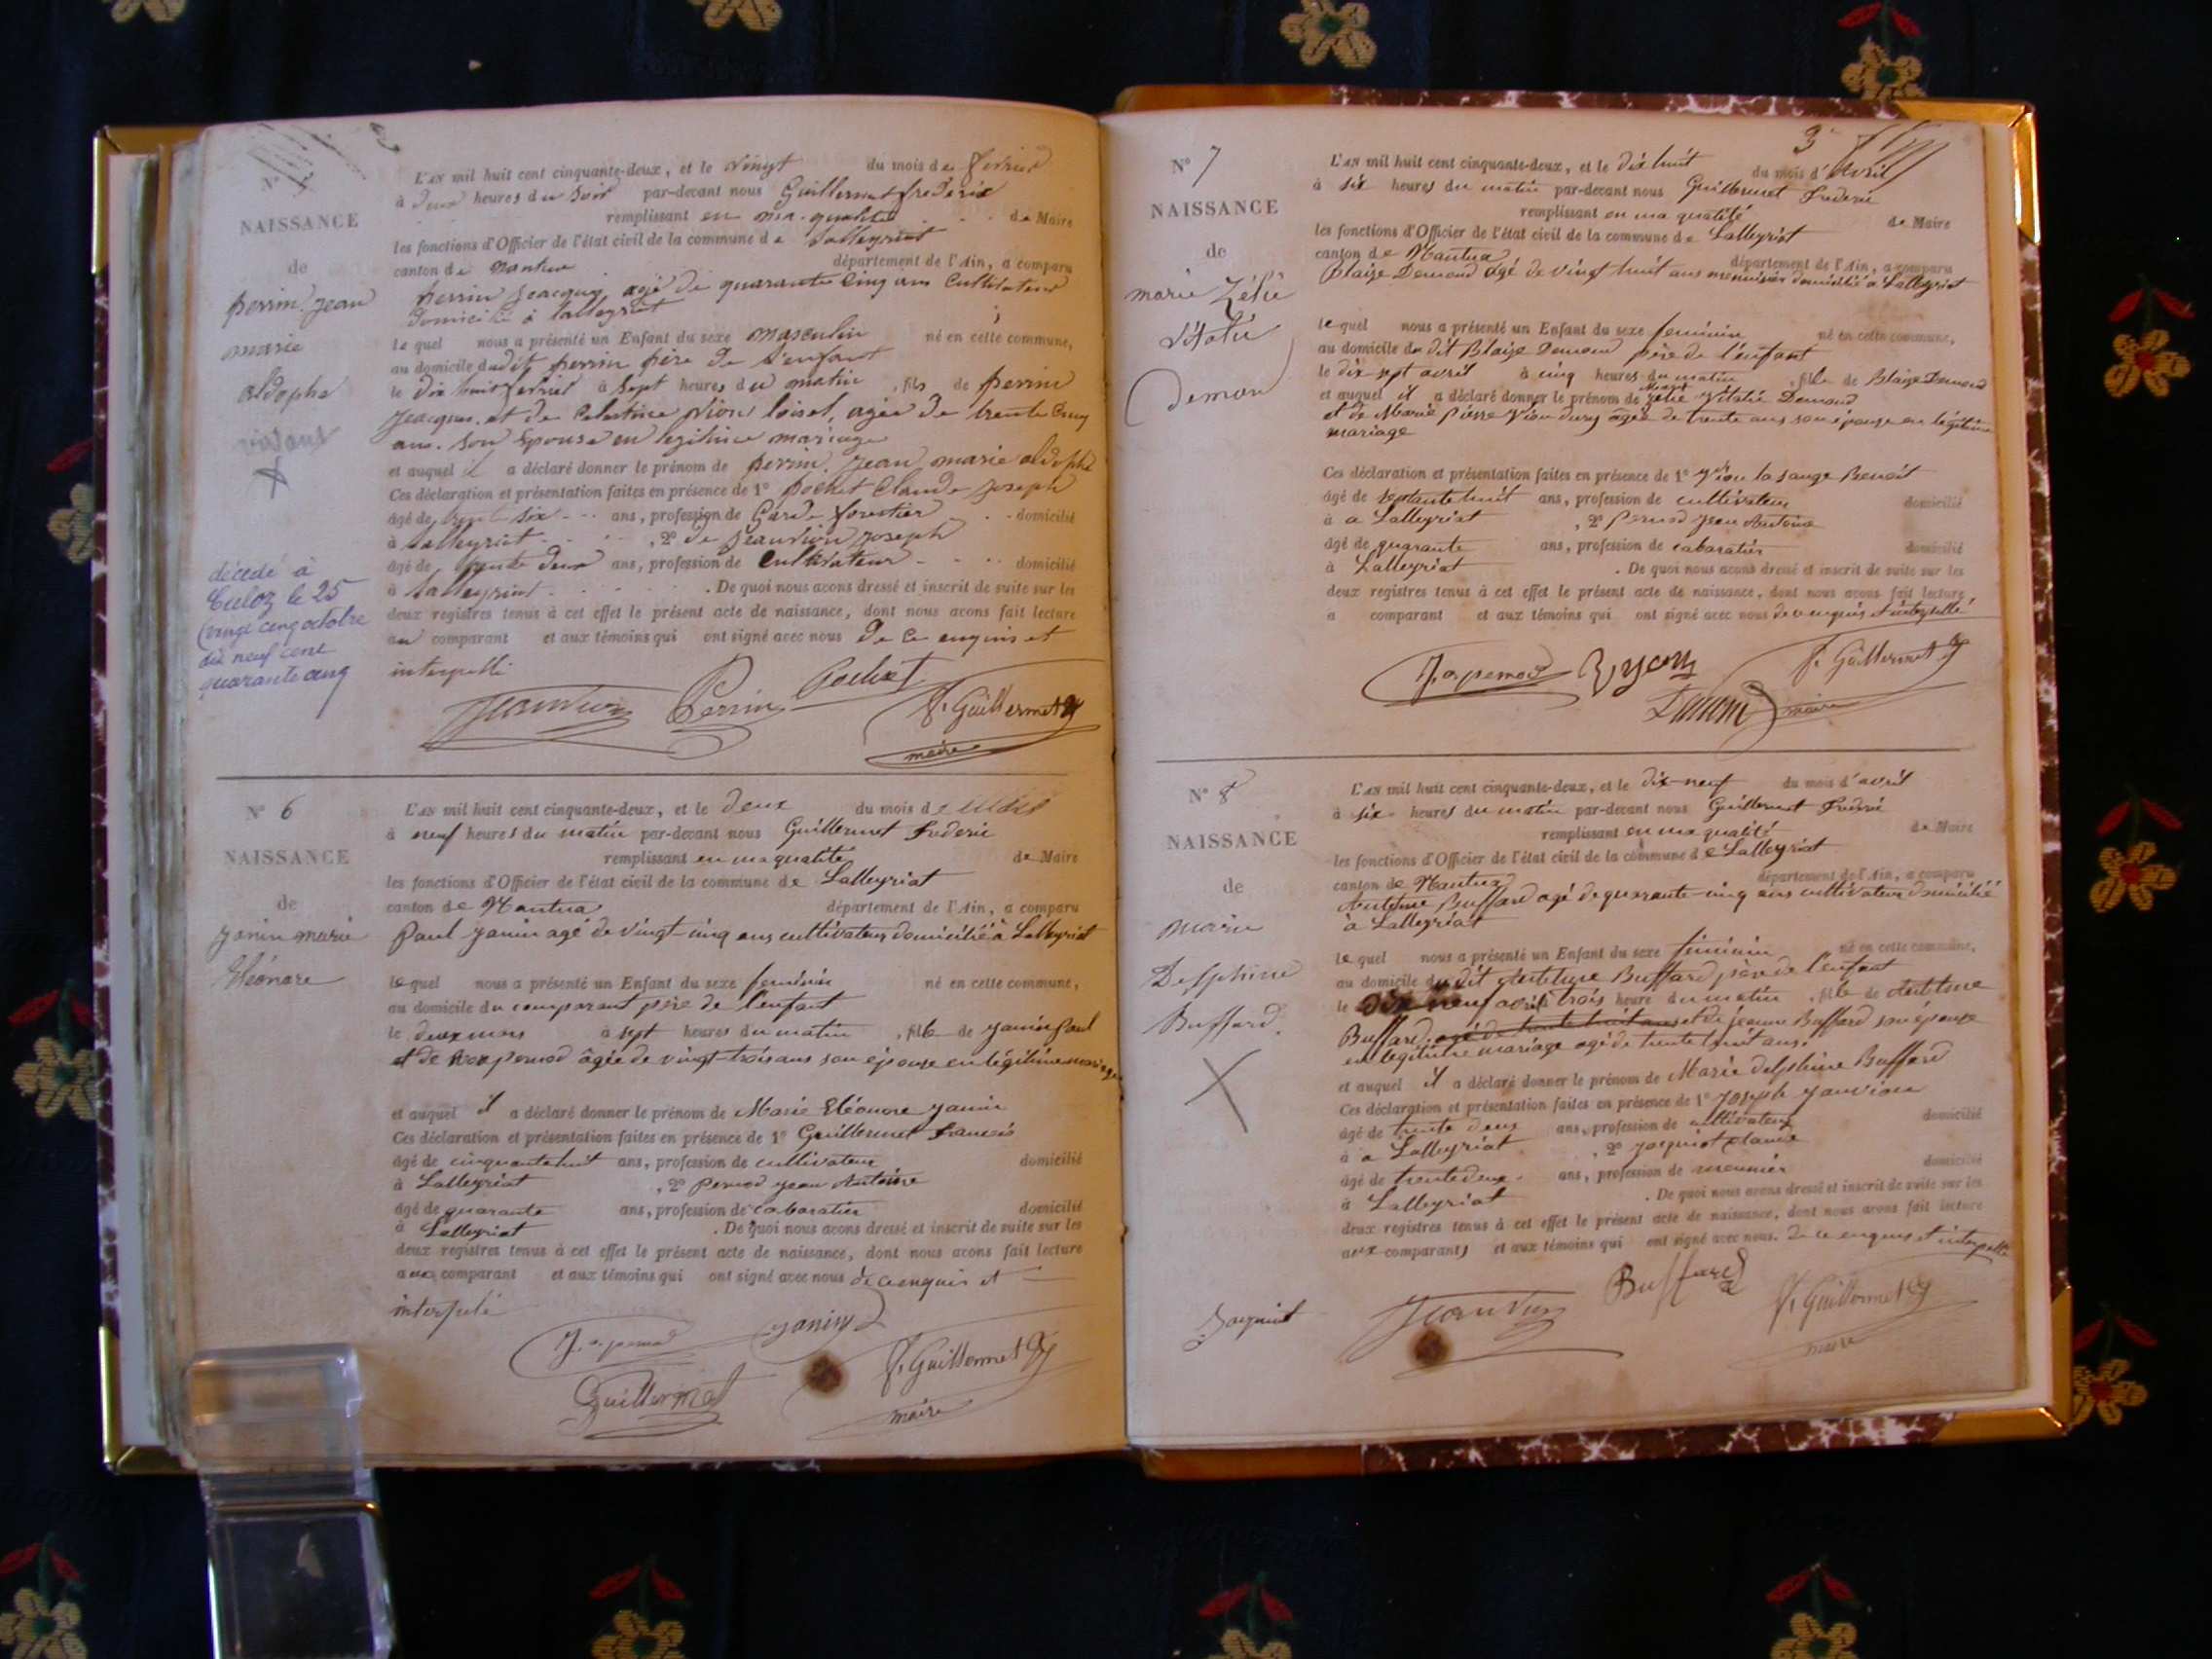 N°
NAISSANCE
de
perrin Jean
marie
aldophe
décédé à
Culoz le 25
(vingt cinq octobre
dix neuf cent
quarante cinq
L'AN mil huit cent cinquante-deux, et le vingt du mois de fevrier
à deux heures du soir par-devant nous Guillermet frederic
remplissant en ma qualité de Maire
les fonctions d'Officier de l'état civil de la commune de Lalleyriat
canton de nantua département de l'Ain, a comparu
perrin Jacques agé de quarante cinq ans Cultivateur
domicilié à lalleyriat
lequel nous a présenté un Enfant du sexe masculin né en cette commune,
au domicile dudit perrin père de l'enfant
le dix huit fevrier à sept heures du matin, fils de perrin
Jacques et de Celestine vion loisel, agée de trente cinq
ans son épouse en legitime mariage
et auquel il a déclaré donner le prénom de perrin Jean marie aldophe
Ces déclaration et présentation faites en présence de 1° pochet Claude joseph
âgé de trente six ans, profession de Garde forestier domicilié
à Lalleyriat, 2° de Jeanvion joseph
âgé de trente deux ans, profession de Cultivateur domicilié
à Lalleyriat. De quoi nous avons dressé et inscrit de suite sur les
deux registres tenus à cet effet le présent acte de naissance, dont nous avons fait lecture
au comparant et aux témoins qui ont signé avec nous de ce enquis et
interpellé
Jeanvion Perrin Pochet F. Guillermet
maire
N° 6
NAISSANCE
de
Janin marie
Eléonore
L'AN mil huit cent cinquante-deux, et le deux du mois de Mars
à neuf heures du matin par-devant nous Guillermet Frederic
remplissant en ma qualité de Maire
les fonctions d'Officier de l'état civil de la commune de Lalleyriat
canton de Nantua département de l'Ain, a comparu
Paul Janin agé de vingt-cinq ans cultivateur domicilié à Lalleyriat
lequel nous a présenté un Enfant du sexe feminin né en cette commune,
au domicile du comparant père de l'enfant
le deux mars à sept heures du matin, fille de Janin Paul
et de pernod âgée de vingt-trois ans son épouse en légitime mariage
et auquel il a déclaré donner le prénom de Marie Eléonore Janin
Ces déclaration et présentation faites en présence de 1° Guillermet Francois
âgé de cinquante huit ans, profession de cultivateur domicilié
à Lalleyriat, 2° Pernod Jean Antoine
âgé de quarante ans, profession de cabaratier domicilié
à Lalleyriat. De quoi nous avons dressé et inscrit de suite sur les
deux registres tenus à cet effet le présent acte de naissance, dont nous avons fait lecture
aux comparant et aux témoins qui ont signé avec nous de ce enquis et
interpelé
J. a. pernod Janin
Guillermet F. Guillermet
maire
3
N° 7
NAISSANCE
de
marie Zélie
Vitalie
Demond
L'AN mil huit cent cinquante-deux, et le dix huit du mois d'Avril
à six heures du matin par-devant nous Guillermet Frederic
remplissant en ma qualité de Maire
les fonctions d'Officier de l'état civil de la commune de Lalleyriat
canton de Nantua département de l'Ain, a comparu
Blaize Demond agé de vingt huit ans menuisier domicilié à Lalleyriat
lequel nous a présenté un Enfant du sexe feminin né en cette commune,
au domicile du dit Blaize Demond père de l'enfant
le dix sept avril à cinq heures du matin, fille de Blaize Demond
et auquel il a déclaré donner le prénom de Marie Zélie Vitalie Demond
et de Marie Pierre Vion dury âgée de trente ans son épouse en légitime
mariage
Ces déclaration et présentation faites en présence de 1° Vion la sauge Benoit
âgé de septante huit ans, profession de cultivateur domicilié
à a Lalleyriat, 2° Pernod Jean Antoine
âgé de quarante ans, profession de cabaratier domicilié
à Lalleyriat. De quoi nous avons dressé et inscrit de suite sur les
deux registres tenus à cet effet le présent acte de naissance, dont nous avons fait lecture
a comparant et aux témoins qui ont signé avec nous de ce enquis et interpellé
J. a. pernod F. Guillermet
maire
N° 8
NAISSANCE
de
marie
Delphine
Buffard
L'AN mil huit cent cinquante-deux, et le dix-neuf du mois d'avril
à six heures du matin par-devant nous Guillermet Frederic
remplissant en ma qualité de Maire
les fonctions d'Officier de l'état civil de la commune de Lalleyriat
canton de Nantua département de l'Ain, a comparu
Antelme Buffard agé de quarante-cinq ans cultivateur domicilié
à Lalleyriat
lequel nous a présenté un Enfant du sexe feminin né en cette commune,
au domicile du dit Antelme Buffard père de l'enfant
le dix neuf avril trois heure du matin, fille de Antelme
Buffard agé de trente huit ans et de jeanne Buffard son épouse
en legitime mariage agé de trente huit ans.
et auquel il a déclaré donner le prénom de Marie delphine Buffard
Ces déclaration et présentation faites en présence de 1° Joseph Janvion
âgé de trente deux ans, profession de cultivateur domicilié
à a Lalleyriat, 2° Jacquiot Claude
âgé de trente deux ans, profession de meunier domicilié
à Lalleyriat. De quoi nous avons dressé et inscrit de suite sur les
deux registres tenus à cet effet le présent acte de naissance, dont nous avons fait lecture
aux comparants et aux témoins qui ont signé avec nous. de ce enquis et interpellé
Jaquiot Jeanvion Buffard F. Guillermet
maire